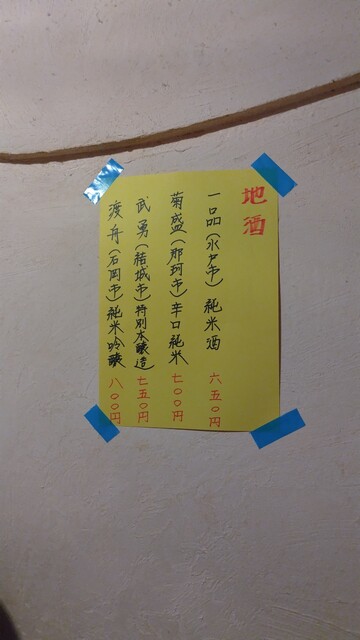 地酒
一品(水戸市) 純米酒 六五〇円
菊盛(那珂市)辛口純米 七〇〇円
武勇(結城市)特別本醸造 七五〇円
渡舟(石岡市)純米吟醸 八〇〇円